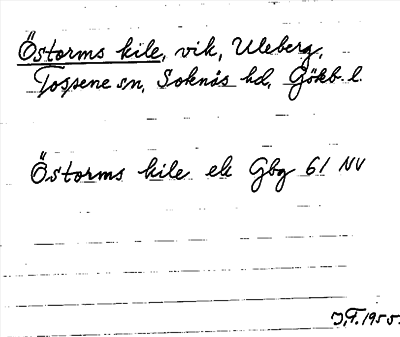 Östorms kile, vik, Uleberg,
Tossene sn, Soknäs hd, Gökb. l.
Östorms kile ek Gbg 61 NV
J.F. 1955.